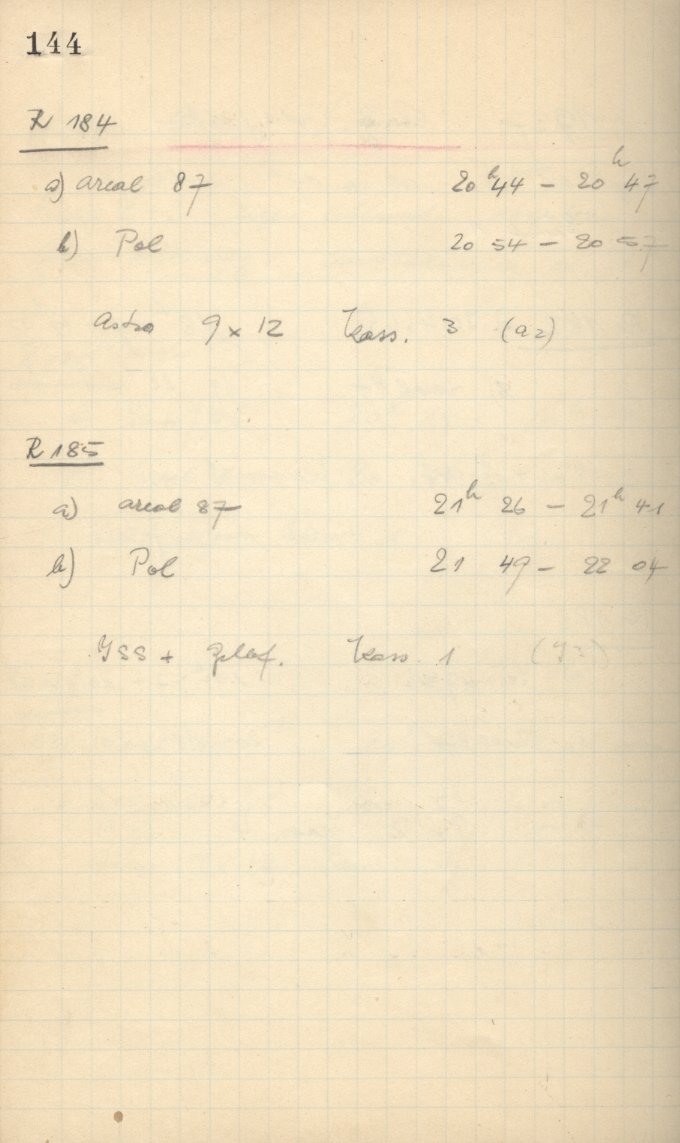 144
R 184
a) areal 87 20ʰ 44 – 20ʰ 47
b) Pol 20 54 – 20 57
Astro 9 x 12 Kass. 3 (a2)
R 185
a) areal 87 21ʰ 26 – 21ʰ 41
b) Pol 21 49 – 22 04
ISS + Kass. 1